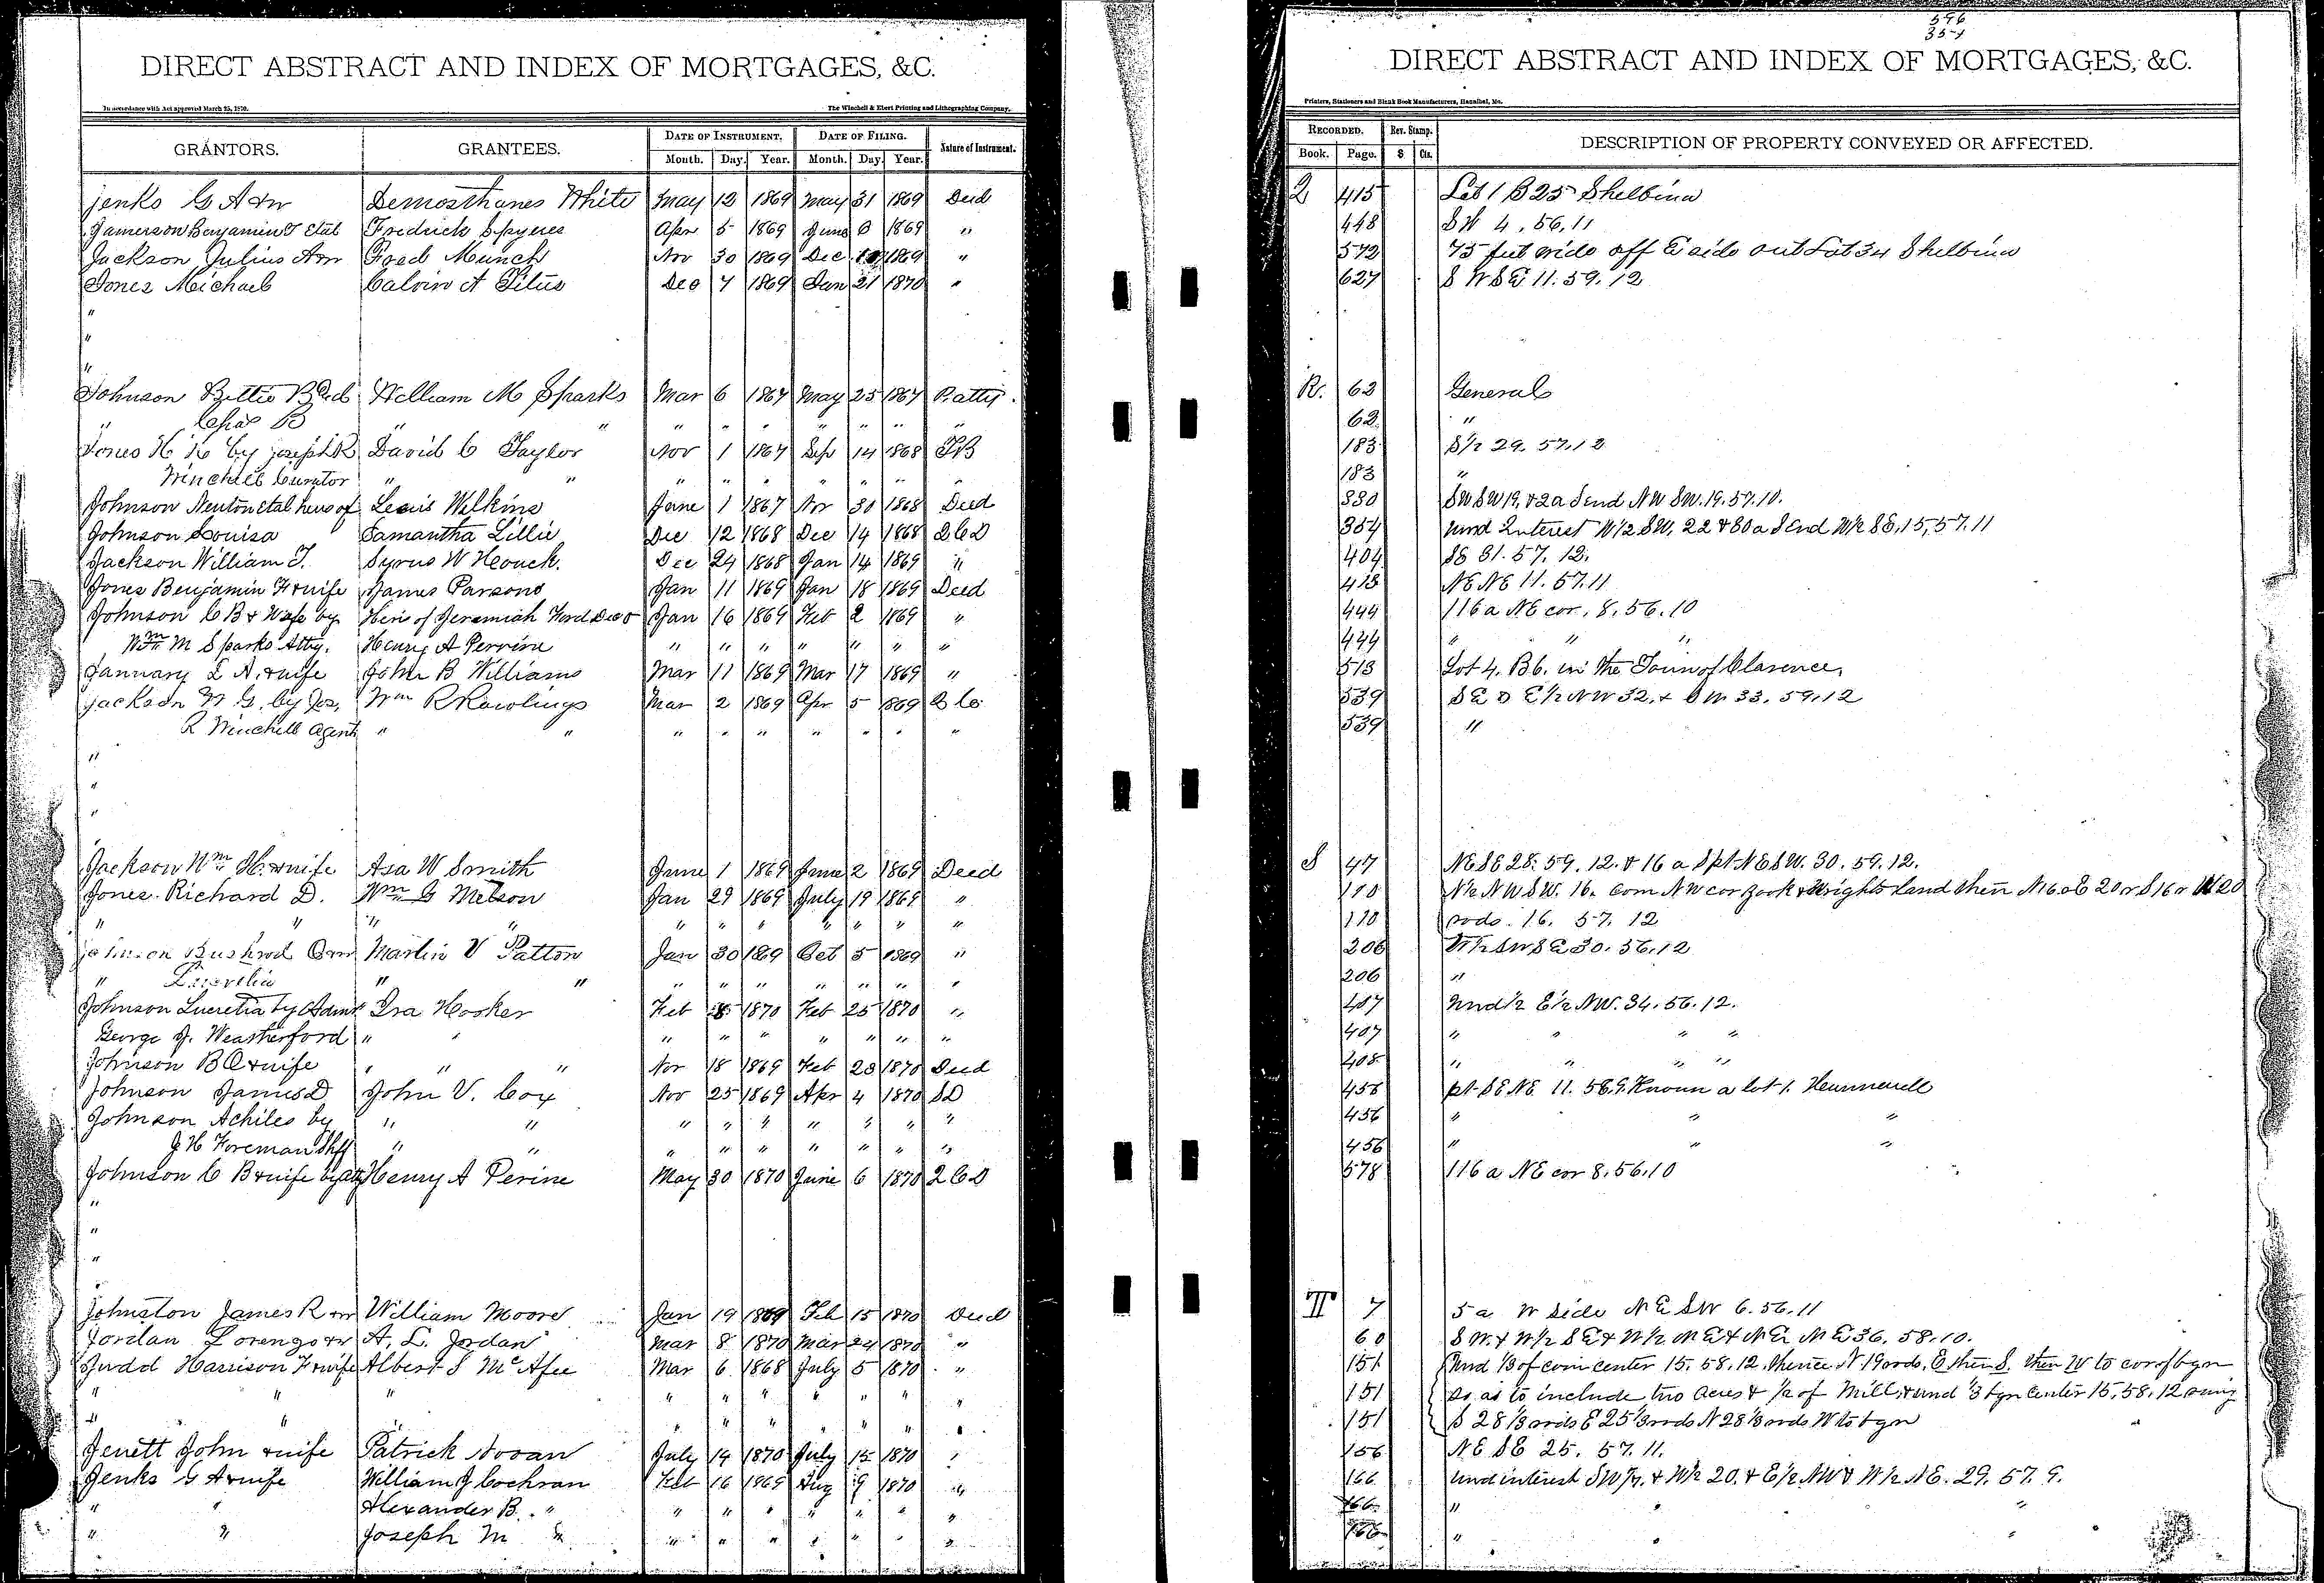 596
354
DIRECT ABSTRACT AND INDEX OF MORTGAGES, &C.
In accordance with Act approved March 25, 1870. The Winchell & Ebert Printing and Lithographing Company,
GRANTORS. GRANTEES. DATE OF INSTRUMENT. DATE OF FILING. Nature of Instrument.
Month. Day. Year. Month. Day. Year.
Jenks G A & w Demosthanes White May 12 1869 May 31 1869 Deed
Jamerson Benjamin T etal Fredrick Spyeres Apr 5 1869 June 6 1869 "
Jackson Julius A & w Fred Munch Nov 30 1869 Dec 1869 "
Jones Michael Calvin A Titus Dec 7 1869 Jan 21 1870 "
"
"
"
Johnson Bettie B & William M Sparks Mar 6 1867 May 25 1867 P. atty.
" Chas B " " " " " " " "
Jones H K by Joseph R David C Taylor Nov 1 1867 Sep 14 1868 TB
Winchell Curator " " " " " " " " "
Johnson Newton etal heirs of Lewis Wilkins June 1 1867 Nov 30 1868 Deed
Johnson Louisa Samantha Lillie Dec 12 1868 Dec 14 1868 QCD
Jackson William T. Syrus W Houck. Dec 24 1868 Jan 14 1869 "
Jones Benjamin F & wife James Parsons Jan 11 1869 Jan 18 1869 Deed
Johnson C B & Wife by Heirs of Jeremiah Ford Jan 16 1869 Feb 2 1869 "
Wm M Sparks Atty. Henry A Perrine " " " " " " "
January L A. & wife John B Williams Mar 11 1869 Mar 17 1869 "
Jackson W G. by Jos, Wm R Rawlings Mar 2 1869 Apr 5 1869
R Winchell Agent " " " " " " " " "
"
"
"
Jackson Wm H. & wife Asa W Smith June 1 1869 June 2 1869 Deed
Jones Richard D. Wm G Melson Jan 29 1869 July 19 1869 "
" " " " " " " " " "
Johnson Bushrod Martin V Patton Jan 30 1869 Oct 5 1869 "
" " " " " " " " " "
Johnson Lucretia by Admr Ira Hooker Feb 25 1870 Feb 25 1870 "
George J. Weatherford " " " " " " " " "
Johnson B & wife " " " Nov 18 1869 Feb 28 1870 Deed
Johnson James D John V. Cox Nov 25 1869 Apr 4 1870 SD
Johnson Achiles by " " " " " " " " "
J H Foreman Shff " " " " " " " " "
Johnson C B & wife by atty Henry A Perine May 30 1870 June 6 1870 QCD
"
"
"
Johnston James R & w William Moore Jan 19 1869 Feb 15 1870 Deed
Jordan Lorenzo & w A, L. Jordan Mar 8 1870 Mar 24 1870 "
Judd Harrison F & wife Albert S McAfee Mar 6 1868 July 5 1870 "
" " " " " " " " " "
" " " " " " " " "
Jenett John & wife Patrick Novan July 14 1870 July 15 1870 "
Jenks G A & wife William J Cochran Feb 16 1869 Aug 9 1870 "
" " Alexander B. " " " " " " " "
" " Joseph M " " " " " " " "
DIRECT ABSTRACT AND INDEX OF MORTGAGES, &C.
Printers, Stationers and Blank Book Manufacturers, Hannibal, Mo.
RECORDED. Rev. Stamp. DESCRIPTION OF PROPERTY CONVEYED OR AFFECTED.
Book. Page. $ Cts.
Q 415 Lot 1 B 25 Shelbina
448 SW 4, 56, 11
572 75 feet wide off E side out Lot 34 Shelbina
627 S W S E 11. 59. 12
R. 62 General
62 "
183 S 1/2 29. 57. 12
183 "
330 SW SW 19, & 2a S end NW SW. 19. 57. 10.
384 und Interest W 1/2 SW, 22 & 30 a S End W 1/2 SE, 15, 57. 11
404 SE 31. 57. 12.
418 NE NE 11. 57. 11
444 116 a NE cor, 8, 56, 10
444 " " "
513 Lot 4, B 6. in the Town of Clarence,
539 E 1/2 NW 32, & 33, 59, 12
539 "
S 47 NE SE 28. 59. 12. & 16 a S pt NE SW. 30. 59. 12.
110 N 1/2 NW SW. 16. com NW cor & Wrights Land then N 16 r E 20 r S 16 r W 20
110 rods. 16. 57. 12
206 W 1/2 SW SE 30. 56. 12
206 "
407 und 1/2 E 1/2 NW. 34. 56. 12.
407 " " " "
408 " " " "
456 pt SE NE 11. 56. 9. Known a lot 1. Hunnewell
456 " " "
456 " " "
578 116 a NE cor 8, 56, 10
T 7 5 a W side NE SW 6. 56. 11
60 SW & W 1/2 SE & W 1/2 NE & NE NE 36. 58. 10.
151 und 1/3 of com center 15. 58. 12. thence N 19 rods, E then S. then W to cor of bgn
151 so as to include two acres & 1/2 of Mill, & und 1/3 bgn center 15, 58, 12
151 S 28 1/3 rods E 25 1/3 rods N 28 1/3 rods W to bgn
156 NE SE 25. 57. 11.
166 und interest SW 17, & W 1/2 20. & E 1/2 NW & W 1/2 NE. 29. 57. 9.
166 " " "
166 " " "